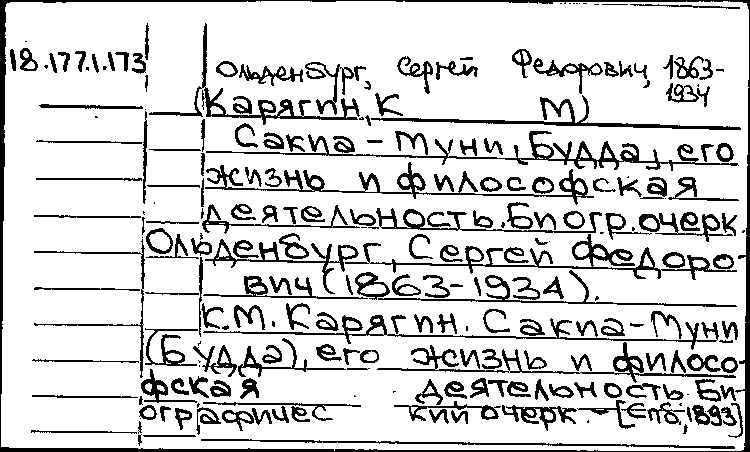 18.177.1.173 Ольденбург, Сергей Федорович, 1863-
1934
(Карягин, К М)
Сакиа-Муни [Будда], его
жизнь и философская
деятельность. Биогр. очерк.
Ольденбург, Сергей Федоро-
вич (1863-1934).
К.М. Карягин. Сакиа-Муни
(Будда), его жизнь и филосо-
фская деятельность. Би-
ографичес кий очерк. - [Спб, 1893]